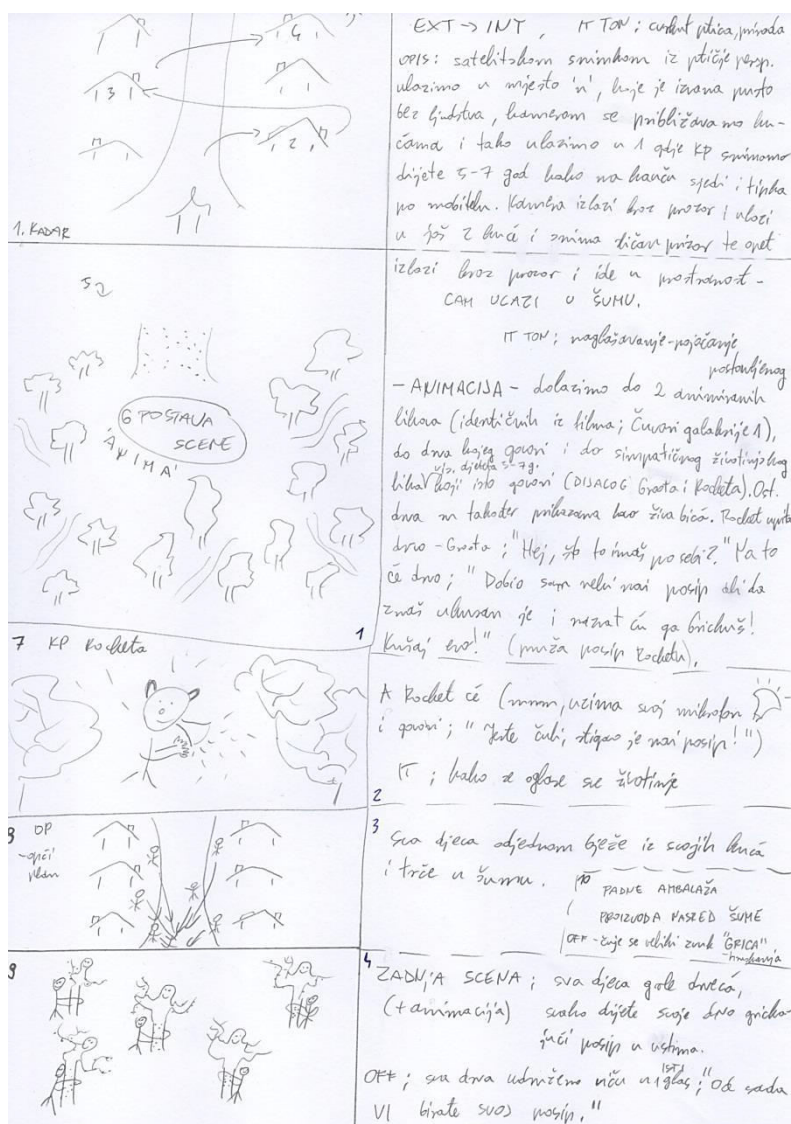 3
4
2
1. KADAR
EXT → INT, IT TON; cvrkut ptica, priroda
OPIS: satelitskom snimkom iz ptičje persp.
ulazimo u mjesto 'n', koje je izvana pusto
bez ljudstva, kamerom se približavamo ku-
ćama i tako ulazimo u 1 gdje KP snimamo
dijete 5-7 god kako na kauču sjedi i tipka
po mobitelu. Kamera izlazi kroz prozor i ulazi
u još 2 kuće i snima sličan prizor te opet
izlazi kroz prozor i ide u prostranost -
CAM ULAZI U ŠUMU.
IT TON; naglašavanje-pojačanje
postavljenog
5
6 POSTAVA
SCENE
ANIMA
1
- ANIMACIJA - dolazimo do 2 animiranih
likova (identičnih iz filma; Čuvari galaksije 1),
do drva kojeg govori i do simpatičnog životinjskog
djeteta 5-7 g.
lika koji isto govori (DIJALOG Groota i Rocketa). Ost.
drva su također prikazana kao živa bića. Rocket upita
drvo - Groota; "Hej, što to imaš po sebi?" Na to
će drvo; "Dobio sam neki novi posip ali da
znaš ukusan je i nazvat ću ga Grickuš!
Kušaj evo!" (pruža posip Rocketu).
7 KP Rocketa
2
A Rocket će (mmm, uzima svoj mikrofon
i govori; "Jeste čuli, stigao je novi posip!")
IT; kako se oglase sve životinje
8 OP
-opći
plan
3
Sva djeca odjednom bježe iz svojih kuća
i trče u šumu.
10 PADNE AMBALAŽA
PROIZVODA NASRED ŠUME
OFF - čuje se veliki zvuk "GRICA"
-hruskanja
9
4
ZADNJA SCENA; sva djeca grle drveća,
(+ animacija) svako dijete svoje drvo gricka-
jući posip u ustima.
OFF; sva drva udruženo viču u 1 glas; "Od sada
VI birate svoj posip."